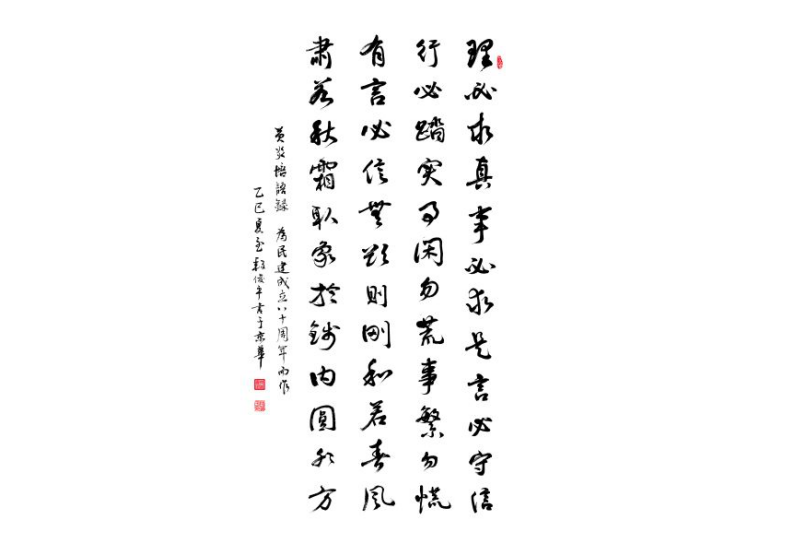 理必求真事必求是言必守信
行必踏实事閑勿荒事繁勿慌
有言必信無欲則剛和若春風
肅若秋霜取象於錢内圓外方
黄炎培語録 為民建成立八十周年而作
乙巳夏至 書于京華